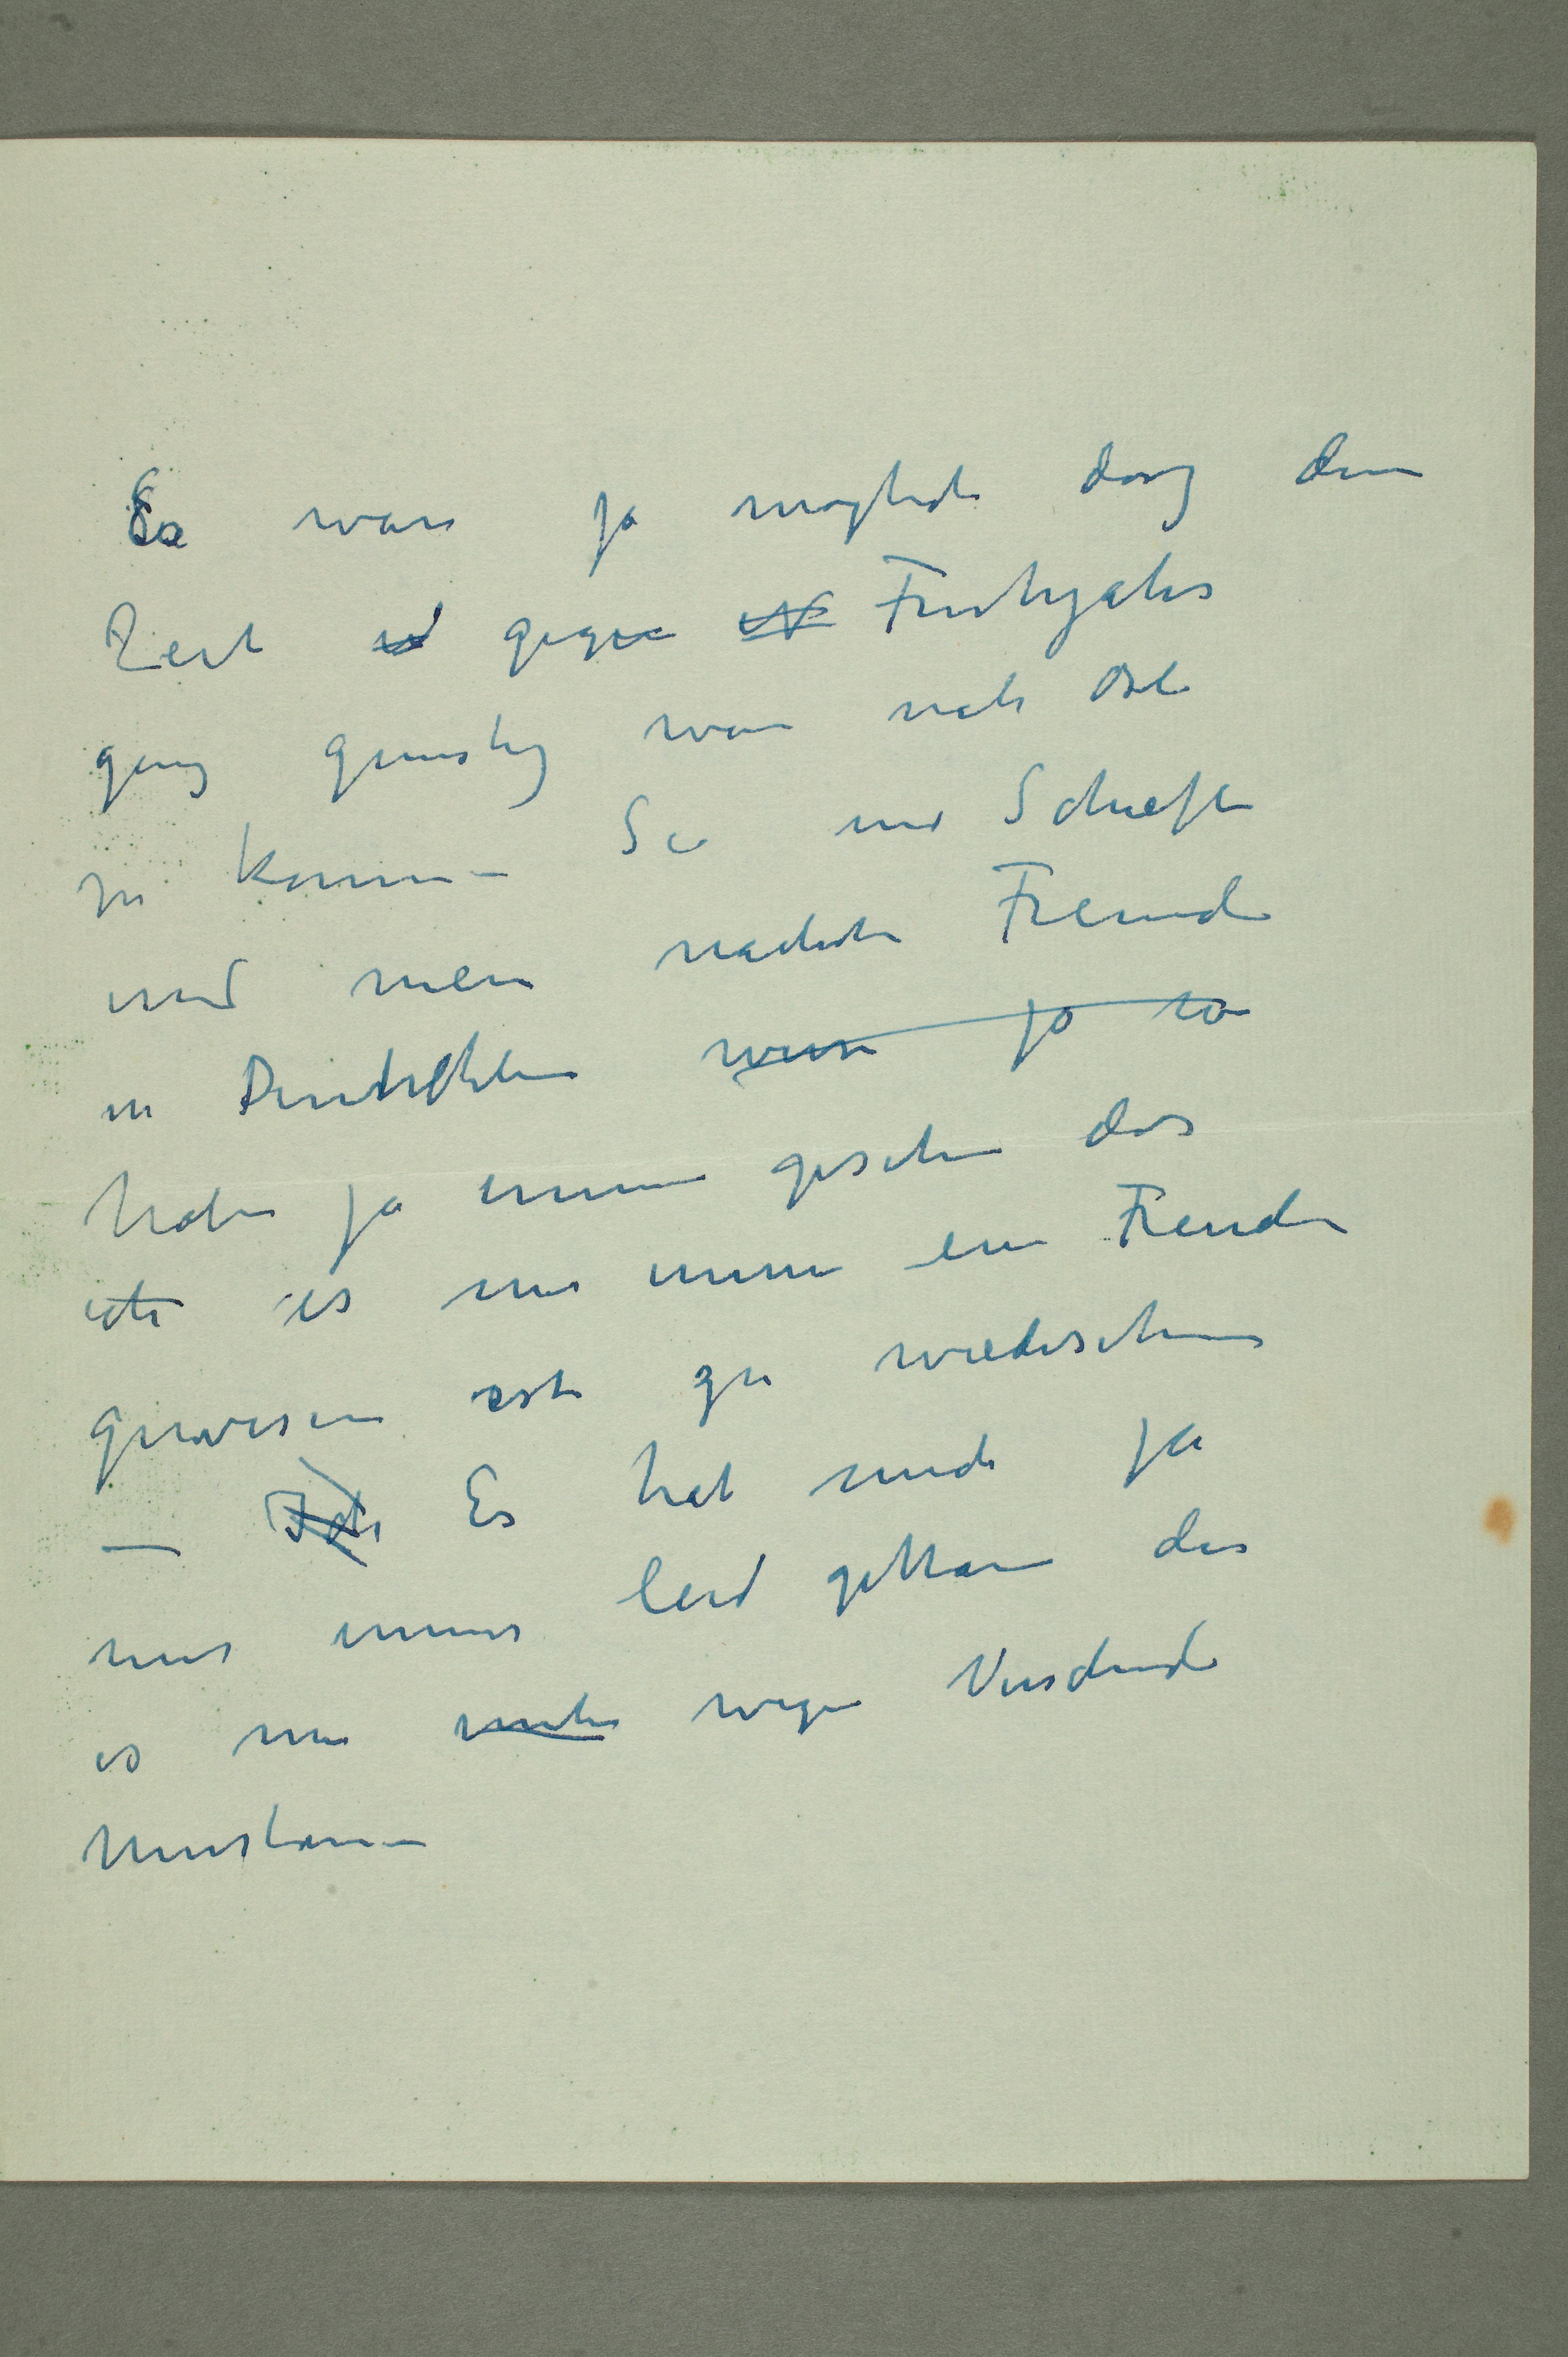 Es ware ja moglich dasz den
Zeit gegen Fruhjahr
ganz gunstig ware nach Oslo
zu kommen Sie und Schiefler
und mein nachste Freunde
in Deutschlan wissen ja so
habe ja immer gesehen das
ich es mir immer eine Freude
gewesen ist zu wiedersehen
— Ich Es hat mich ja
nur immer leid gethan das
es mir nicht wegen Verschiede
Umstanen